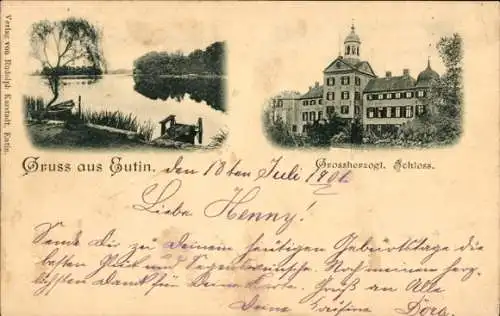 Verlag von Rudolph Karstadt, Eutin.
Gruss aus Eutin. den 10ten Juli 1901
Grossherzogl. Schloss.
Liebe Henny!
Sende Dir zu Deinem heutigen Geburtstage die
besten Glück und Segenswünsche. Noch meinen herz-
lichsten Dank für Deine Karte. Gruß an Alle
Deine Dora.